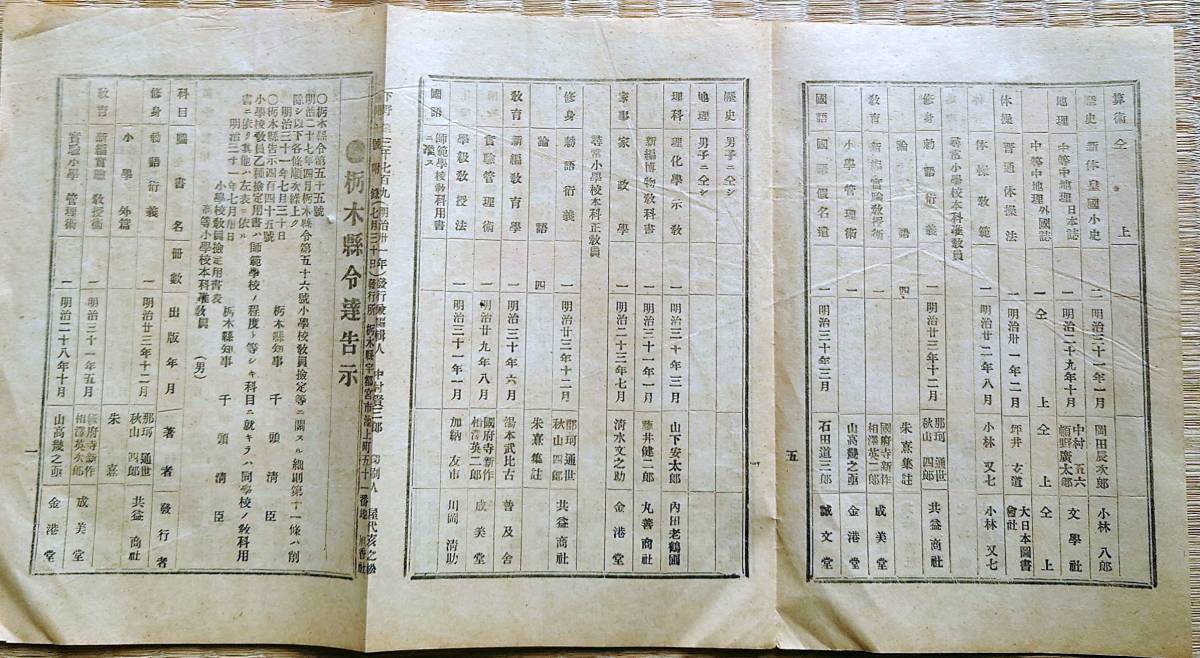 算術 仝 上
歴史 新体皇國小史 二 明治三十一年一月 岡田辰次郎 小林八郎
地理 中等中地理 日本誌 一 明治二十九年十月 中村五六 頓野廣太郎 文學社
中等中地理 外國誌 一 仝 上 仝 上 仝 上
体操 普通体操法 一 明治卅一年二月 坪井玄道 大日本圖書會社
体操教範 一 明治廿二年八月 小林又七 小林又七
尋常小學校本科准教員
修身 勅語衍義 一 明治廿三年十二月 那珂通世 秋山四郎 共益商社
論語 四 朱熹集註
教育 新編實驗教授術 國府寺新作 相澤英二郎 成美堂
小學管理術 一 山高幾之丞 金港堂
國語 國語假名遣 一 明治三十年三月 石田道三郎 誠文堂
五
歴史 男子ニ仝シ
地理 男子ニ仝シ
理科 理化學示教 一 明治三十年三月 山下安太郎 內田老鶴圃
新編博物教科書 一 明治三十一年一月 藤井健二郎 丸善商社
家事 家政學 二 明治二十三年七月 清水文之助 金港堂
尋常小學校本科正教員
修身 勅語衍義 一 明治廿三年十二月 那珂通世 秋山四郎 共益商社
論語 四 朱熹集註
教育 新編教育學 一 明治三十年六月 湯本武比古 普及舍
實驗管理術 一 明治廿九年八月 國府寺新作 相澤英二郎 成美堂
學級教授法 一 明治三十一年一月 加納友市 川岡清助
國語 師範學校教科用書ニ準ス
附録(七月三十日) 發行所 栃木縣宇都宮市
栃木縣令達告示
〇栃木縣令第五十五號
明治二十七年四月栃木縣令第五十六號小學校教員檢定等ニ關スル細則第十一條ハ削
除シ以下各條順次繰上ク
明治三十一年七月三十日 栃木縣知事 千頭清臣
〇栃木縣告示四百四十五號
小學校教員乙種檢定用書ハ師範學校ノ程度ト等シキ科目ニ就キテハ同學校ノ教科用
書ニ依リ其他ハ左表ニ依ル
明治三十一年七月卅日 栃木縣知事 千頭清臣
小學校教員檢定用書表
高等小學校本科准教員 (男)
科目 圖書名 冊數 出版年月 著者 發行者
修身 勅語衍義 一 明治廿三年十二月 那珂通世 秋山四郎 共益商社
小學 外篇 朱熹
教育 新編實驗教授術 一 明治三十一年五月 國府寺新作 相澤英次郎 成美堂
實驗小學管理術 一 明治二十八年十月 山高幾之丞 金港堂
一